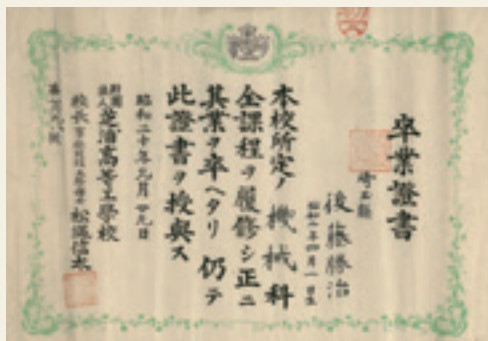 卒業證書
埼玉縣
後藤勝治
本校所定ノ機械科
全課程ヲ履修シ正ニ
其業ヲ卒ヘタリ仍テ
此證書ヲ授與ス
昭和二十年九月廿九日
財團法人芝浦高等工學校
校長
松縄信太